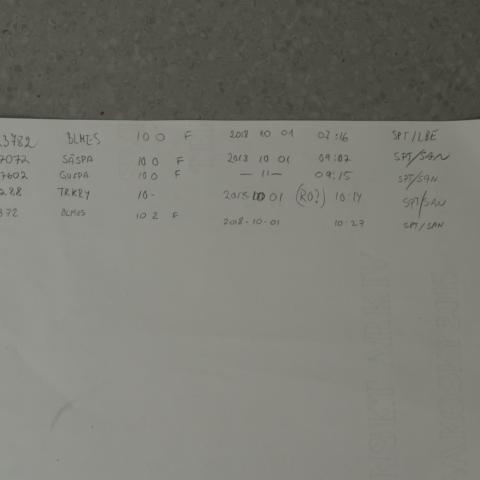 3782 BLMES 10 0 F 2018 10 01 07:16 SPT/LBE
7072 SÄSPA 10 0 F 2018 10 01 09:02 SPT/SAN
7602 GUSPA 10 0 F — 11 — 09:15 SPT/SAN
288 TRKRY 10 - 2018 10 01 (RO?) 10:14 SPT/SAN
372 BLMES 10 2 F 2018-10-01 10:27 SPT/SAN